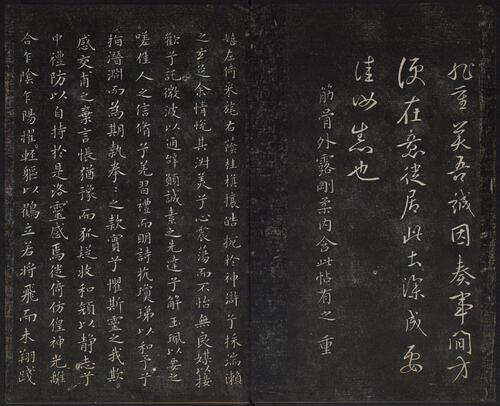 吾誠因奏事閒方
在意使居此去深成
佳也
筋骨外露剛柔內含此帖有之 重
嬉左倚采旄右蔭桂旗攘皓捥於神滸兮採湍瀨
之玄芝余情悅其淑美兮心震蕩而不怡無良媒以接
歡兮託微波以通辭願誠素之先達兮解玉珮以要之
嗟佳人之信脩兮羌習禮而明詩抗瓊珶以和予兮
指潛淵而為期執拳〻之款實兮懼斯靈之我欺
感交甫之棄言悵猶豫而狐疑收和顏以靜志兮
申禮防以自持於是洛靈感焉徙倚仿偟神光離
合乍陰乍陽擢輕軀以鶴立若將飛而未翔踐